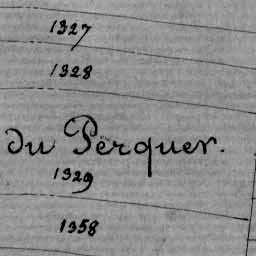 1327
1328
du Perquer.
1329
1358